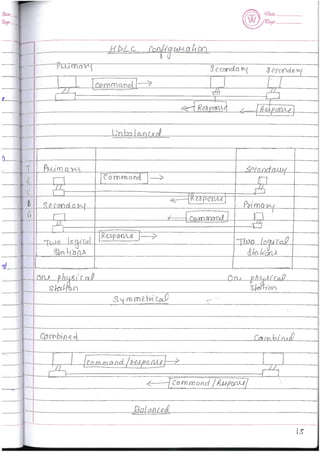 Date
Page
HDLC configuration
Primary Secondary Secondary
Command
Response Response
Unbalanced
Primary Secondary
Command
Response
Secondary Primary
Command
Response
Two logical Two logical
Stations Stations
One physical One physical
Station Station
Symmetrical
Combined Combined
Command/response
Command/Response
Balanced
15